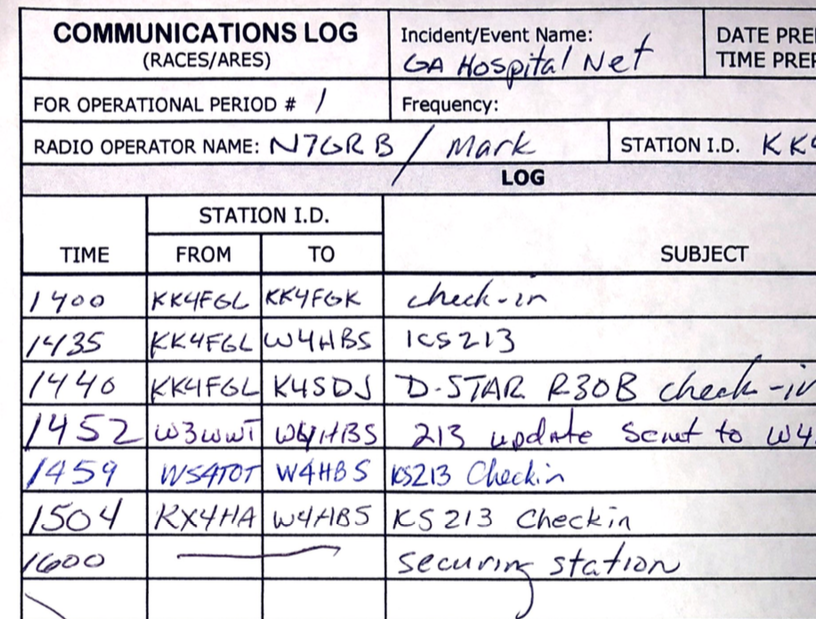 COMMUNICATIONS LOG
(RACES/ARES)
Incident/Event Name:
GA Hospital Net
DATE PRE
TIME PREP
FOR OPERATIONAL PERIOD # 1
Frequency:
RADIO OPERATOR NAME: N7GRB / Mark
STATION I.D. KK4
LOG
STATION I.D.
TIME FROM TO SUBJECT
1400 KK4FGL KK4FGK check-in
1435 KK4FGL W4HBS ICS213
1440 KK4FGL K4SDJ D-STAR R30B check-in
1452 W3WWT W4HBS 213 update sent to W4
1459 WS4TOT W4HBS KS213 Checkin
1504 KX4HA W4HBS KS213 Checkin
1600 securing station